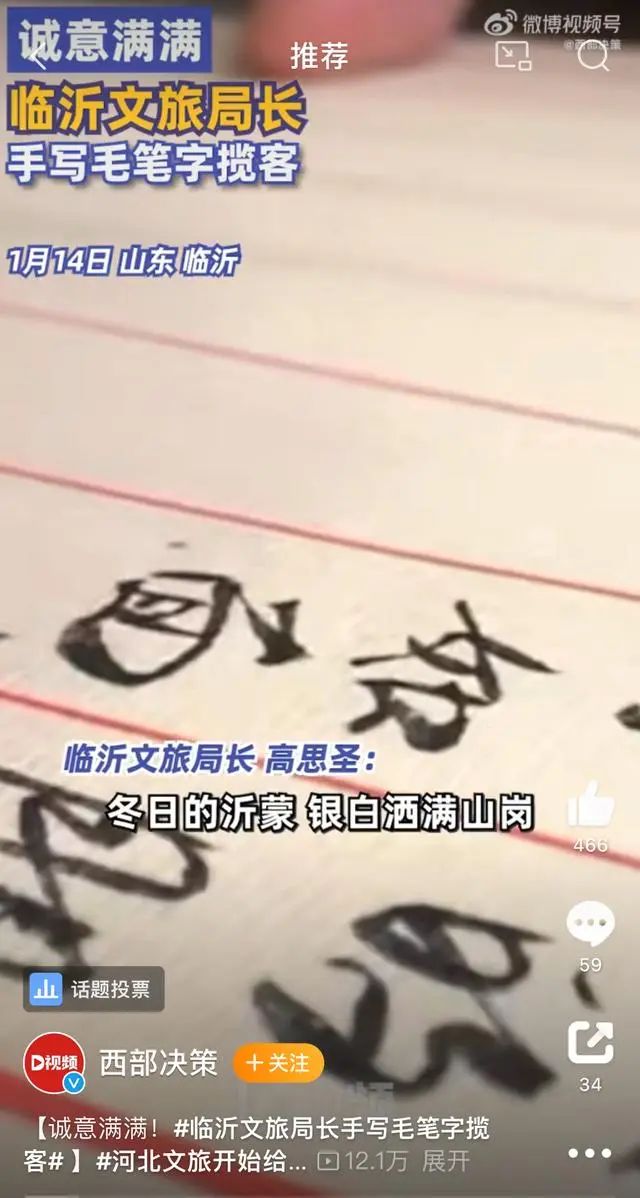 诚意满满
微博视频号
@西部决策
推荐
临沂文旅局长
手写毛笔字揽客
1月14日 山东 临沂
临沂文旅局长 高思圣：
冬日的沂蒙 银白洒满山岗
466
59
话题投票
D视频
西部决策
+关注
34
【诚意满满！#临沂文旅局长手写毛笔字揽
客#】#河北文旅开始给... 12.1万 展开